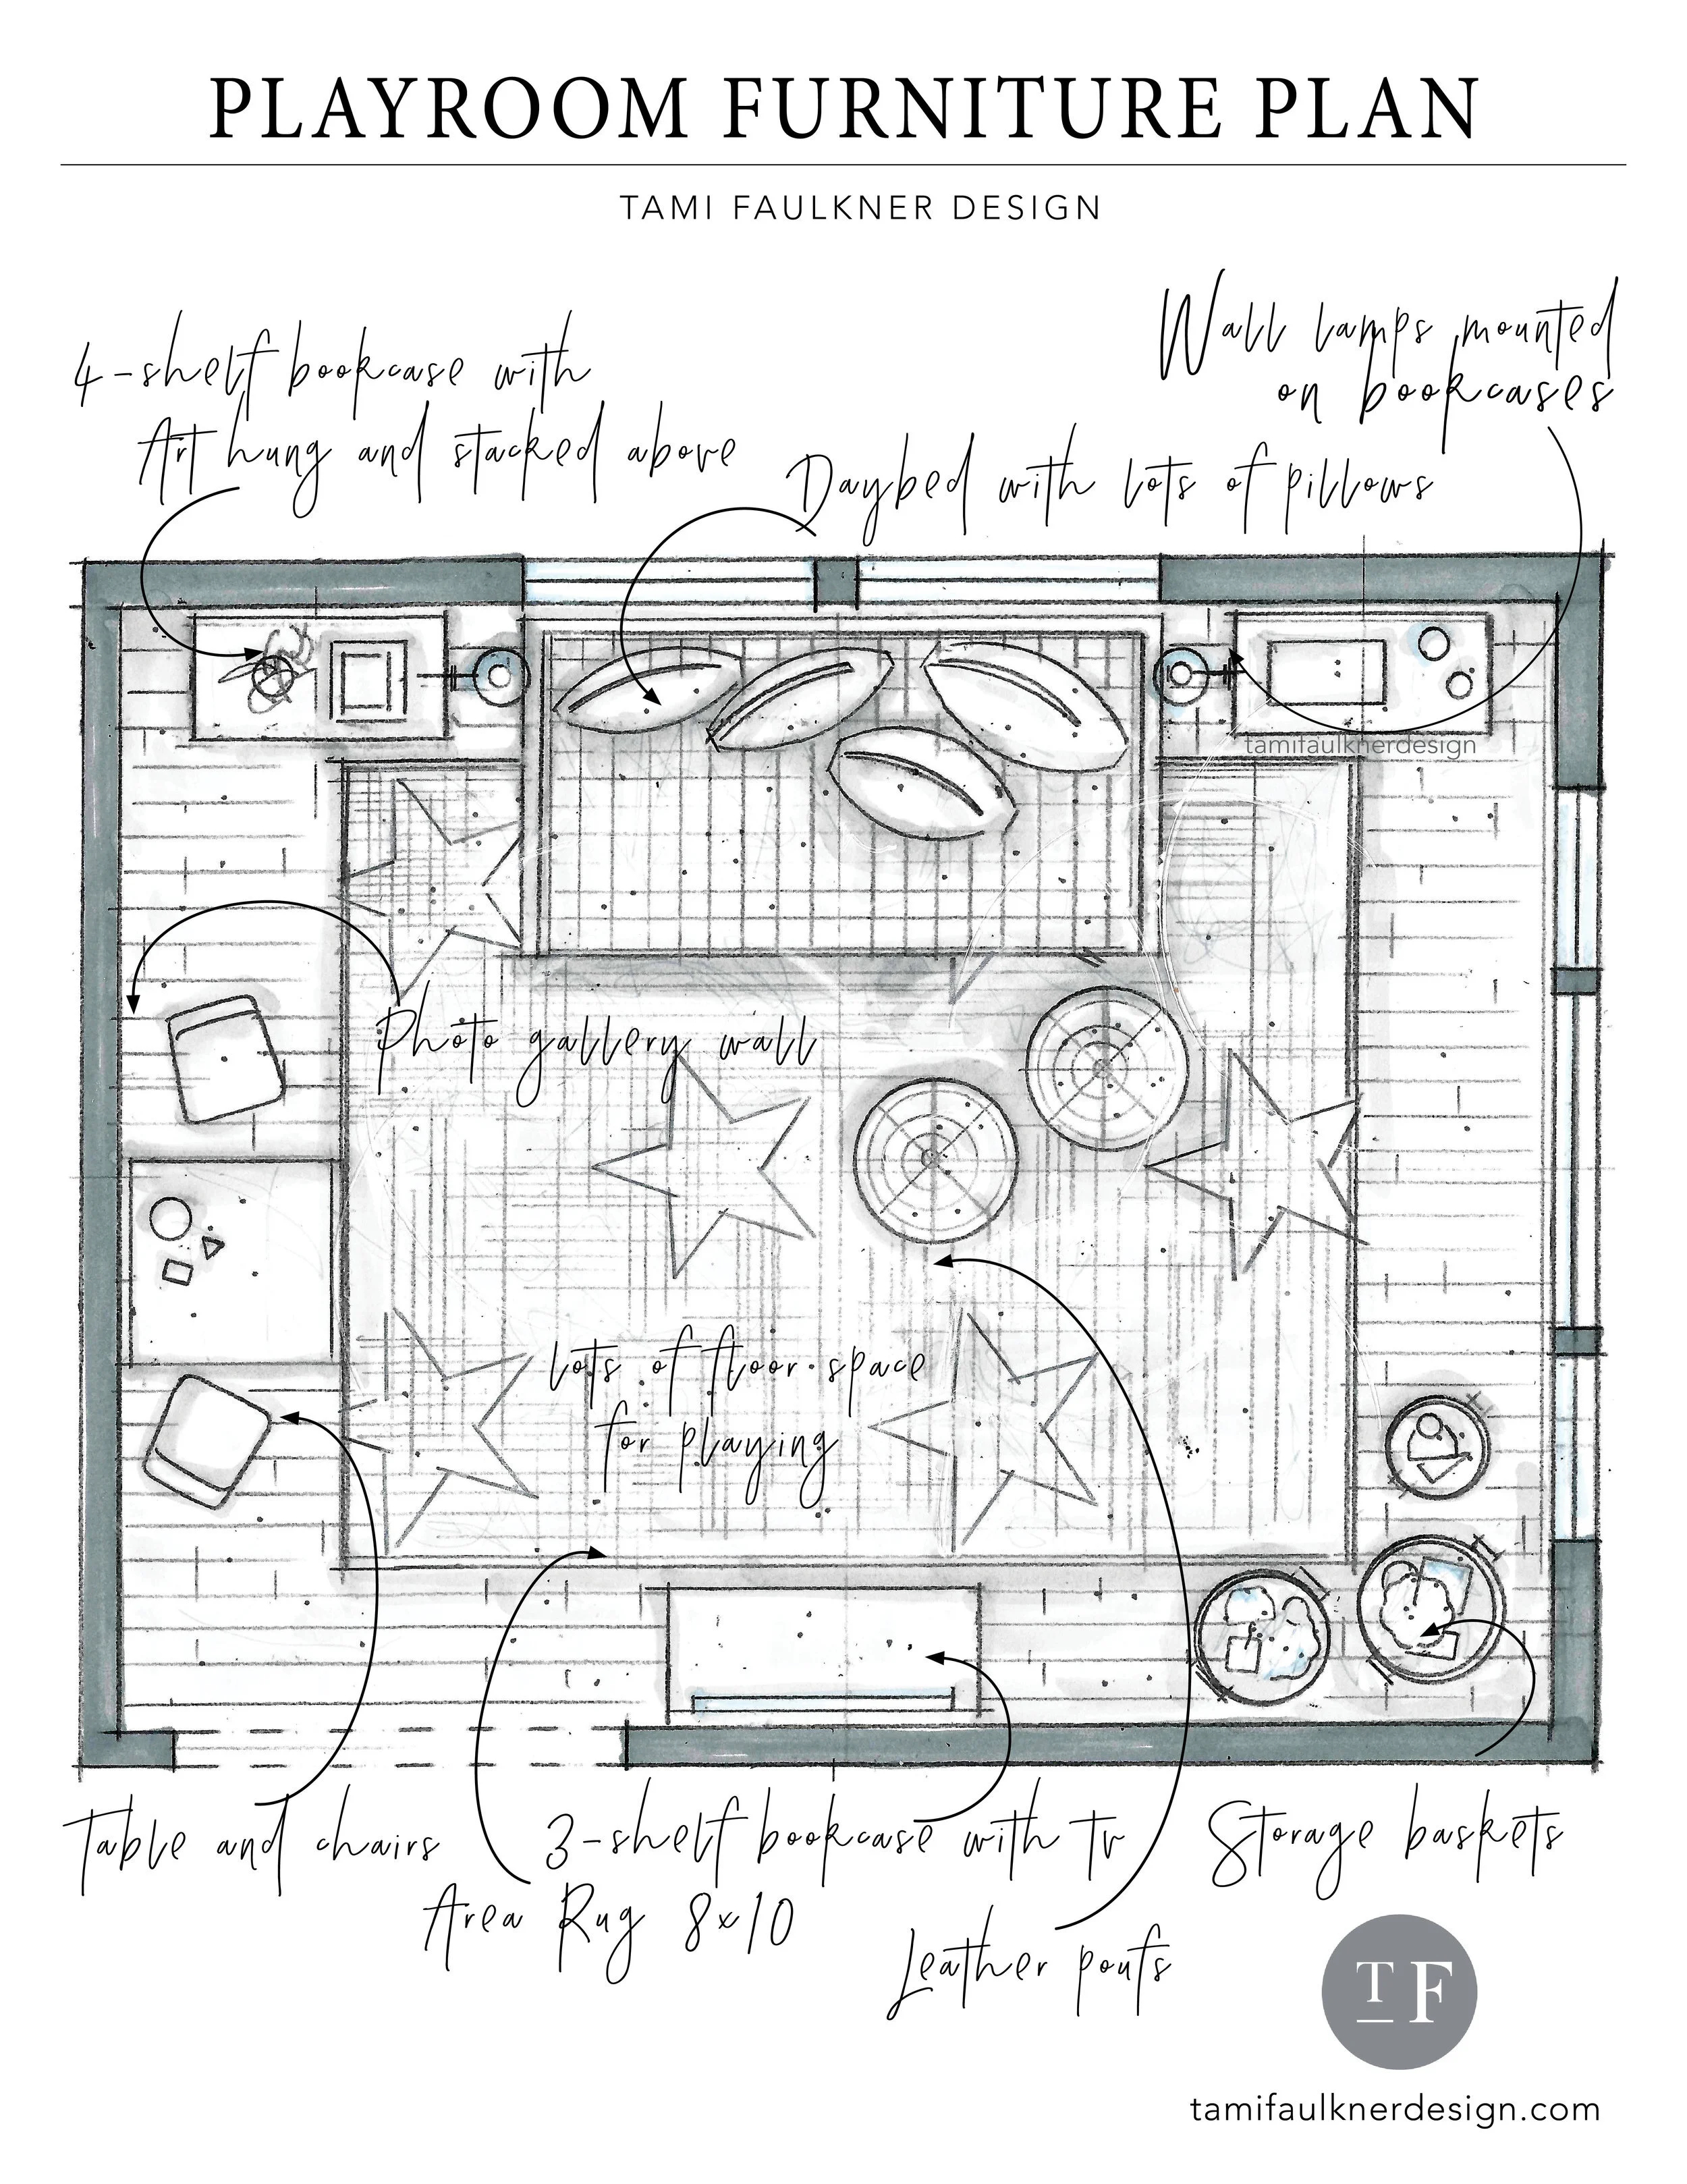 PLAYROOM FURNITURE PLAN
TAMI FAULKNER DESIGN
Wall lamps mounted
on bookcases
4-shelf bookcase with
Art hung and stacked above
Daybed with lots of pillows
tamifaulknerdesign
Photo gallery wall
lots of floor space
for playing
Table and chairs
3-shelf bookcase with tv
Storage baskets
Area Rug 8x10
Leather poufs
TF
tamifaulknerdesign.com